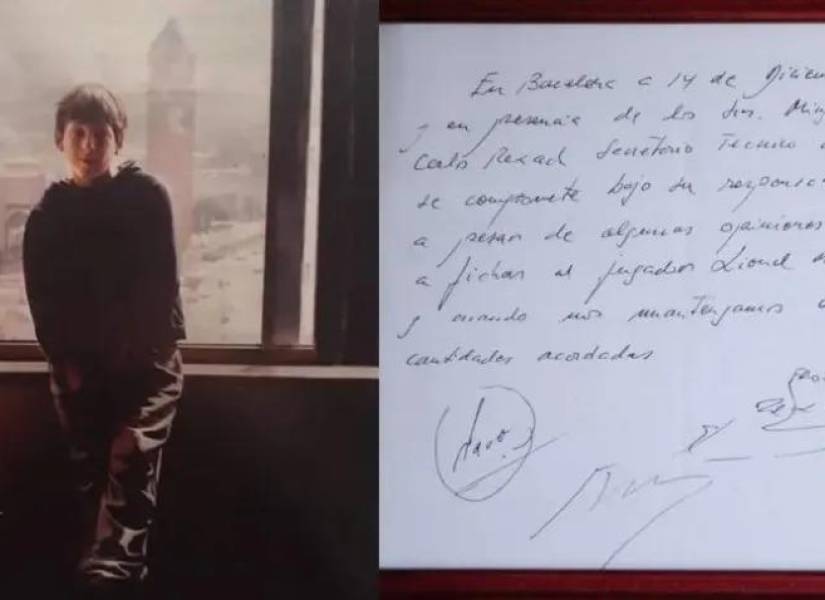 En Barcelona a 14 de Diciem
y en presencia de los Srs. Min
Carlos Rexach Secretario Técnico
se compromete bajo su responsa
a pesar de algunas opiniones
a fichar al jugador Lionel
y cuando nos mantengamos
cantidades acordadas